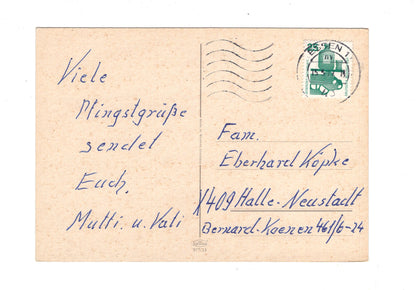 Viele
Pfingstgrüße
sendet
Euch.
Mutti. u. Vati
ESSEN 1
Fam.
Eberhard Köpke
X409 Halle-Neustadt
Bernard-Koenen 461/6-24